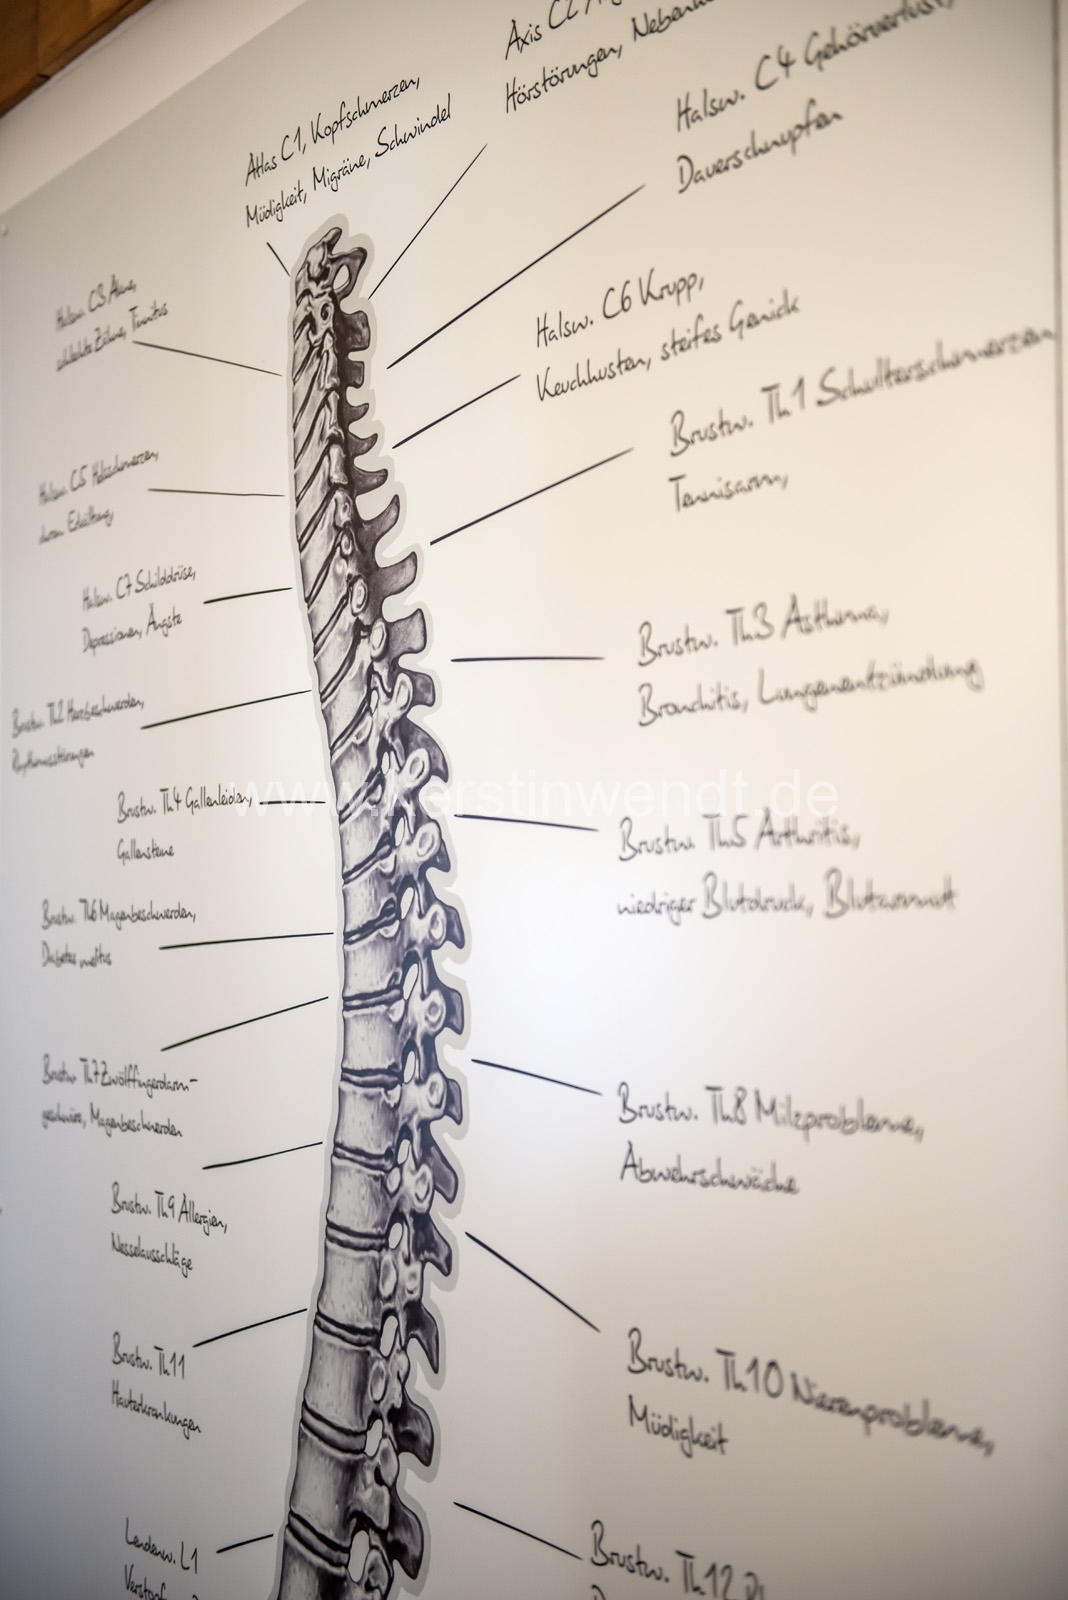 Atlas C1, Kopfschmerzen,
Müdigkeit, Migräne, Schwindel
Axis C2
Hörstörungen,
Halsw. C4 Gehörverlust,
Dauerschnupfen
Halsw. C3 Akne,
schlechte Zähne, Tinnitus
Halsw. C6 Krupp,
Keuchhusten, steifes Genick
Brustw. Th1 Schulterschmerzen
Tennisarm,
Halsw. C5 Halsschmerzen,
Halsw. C7 Schilddrüse,
Depressionen, Ängste
Brustw. Th3 Asthma,
Bronchitis, Lungenentzündung
Brustw. Th2 Herzbeschwerden,
Rhythmusstörungen
www.kerstinwendt.de
Brustw. Th4 Gallenleiden,
Gallensteine
Brustw. Th5 Arthritis,
niedriger Blutdruck, Blutarmut
Brustw. Th6 Magenbeschwerden,
Diabetes melitus
Brustw. Th7 Zwölffingerdarm-
geschwüre, Magenbeschwerden
Brustw. Th8 Milzprobleme,
Abwehrschwäche
Brustw. Th9 Allergien,
Nesselausschläge
Brustw. Th10 Nierenprobleme,
Müdigkeit
Brustw. Th11
Hauterkrankungen
Lendenw. L1
Brustw. Th12